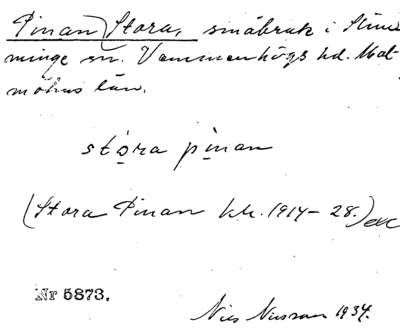 Pinan, Stora, småbruk i Slim
minge sn. Vemmenhögs hd. Mal
möhus län.
stọra pịnan
(Stora Pinan kk. 1914-28.) exc
Nr 5873.
Nils Nilsson 1934.